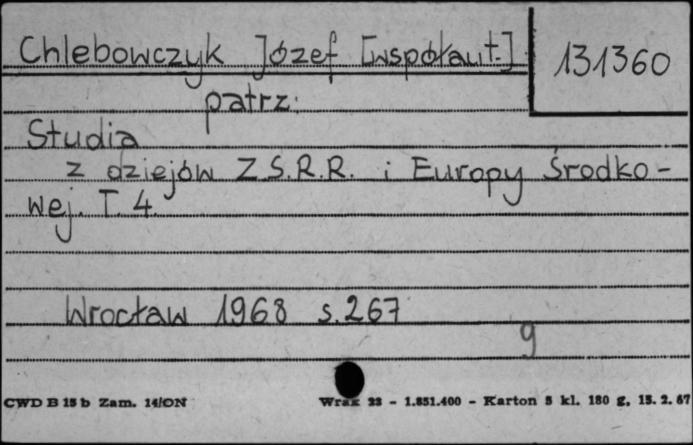 Chlebowczyk Józef [współaut.]
131360
patrz:
Studia
z dziejów Z.S.R.R. i Europy Środko-
wej. T. 4.
Wrocław 1968 s. 267
g
CWD B 15 b Zam. 14/ON
Wrzx 23 - 1.851.400 - Karton 5 kl. 180 g, 15. 2. 67